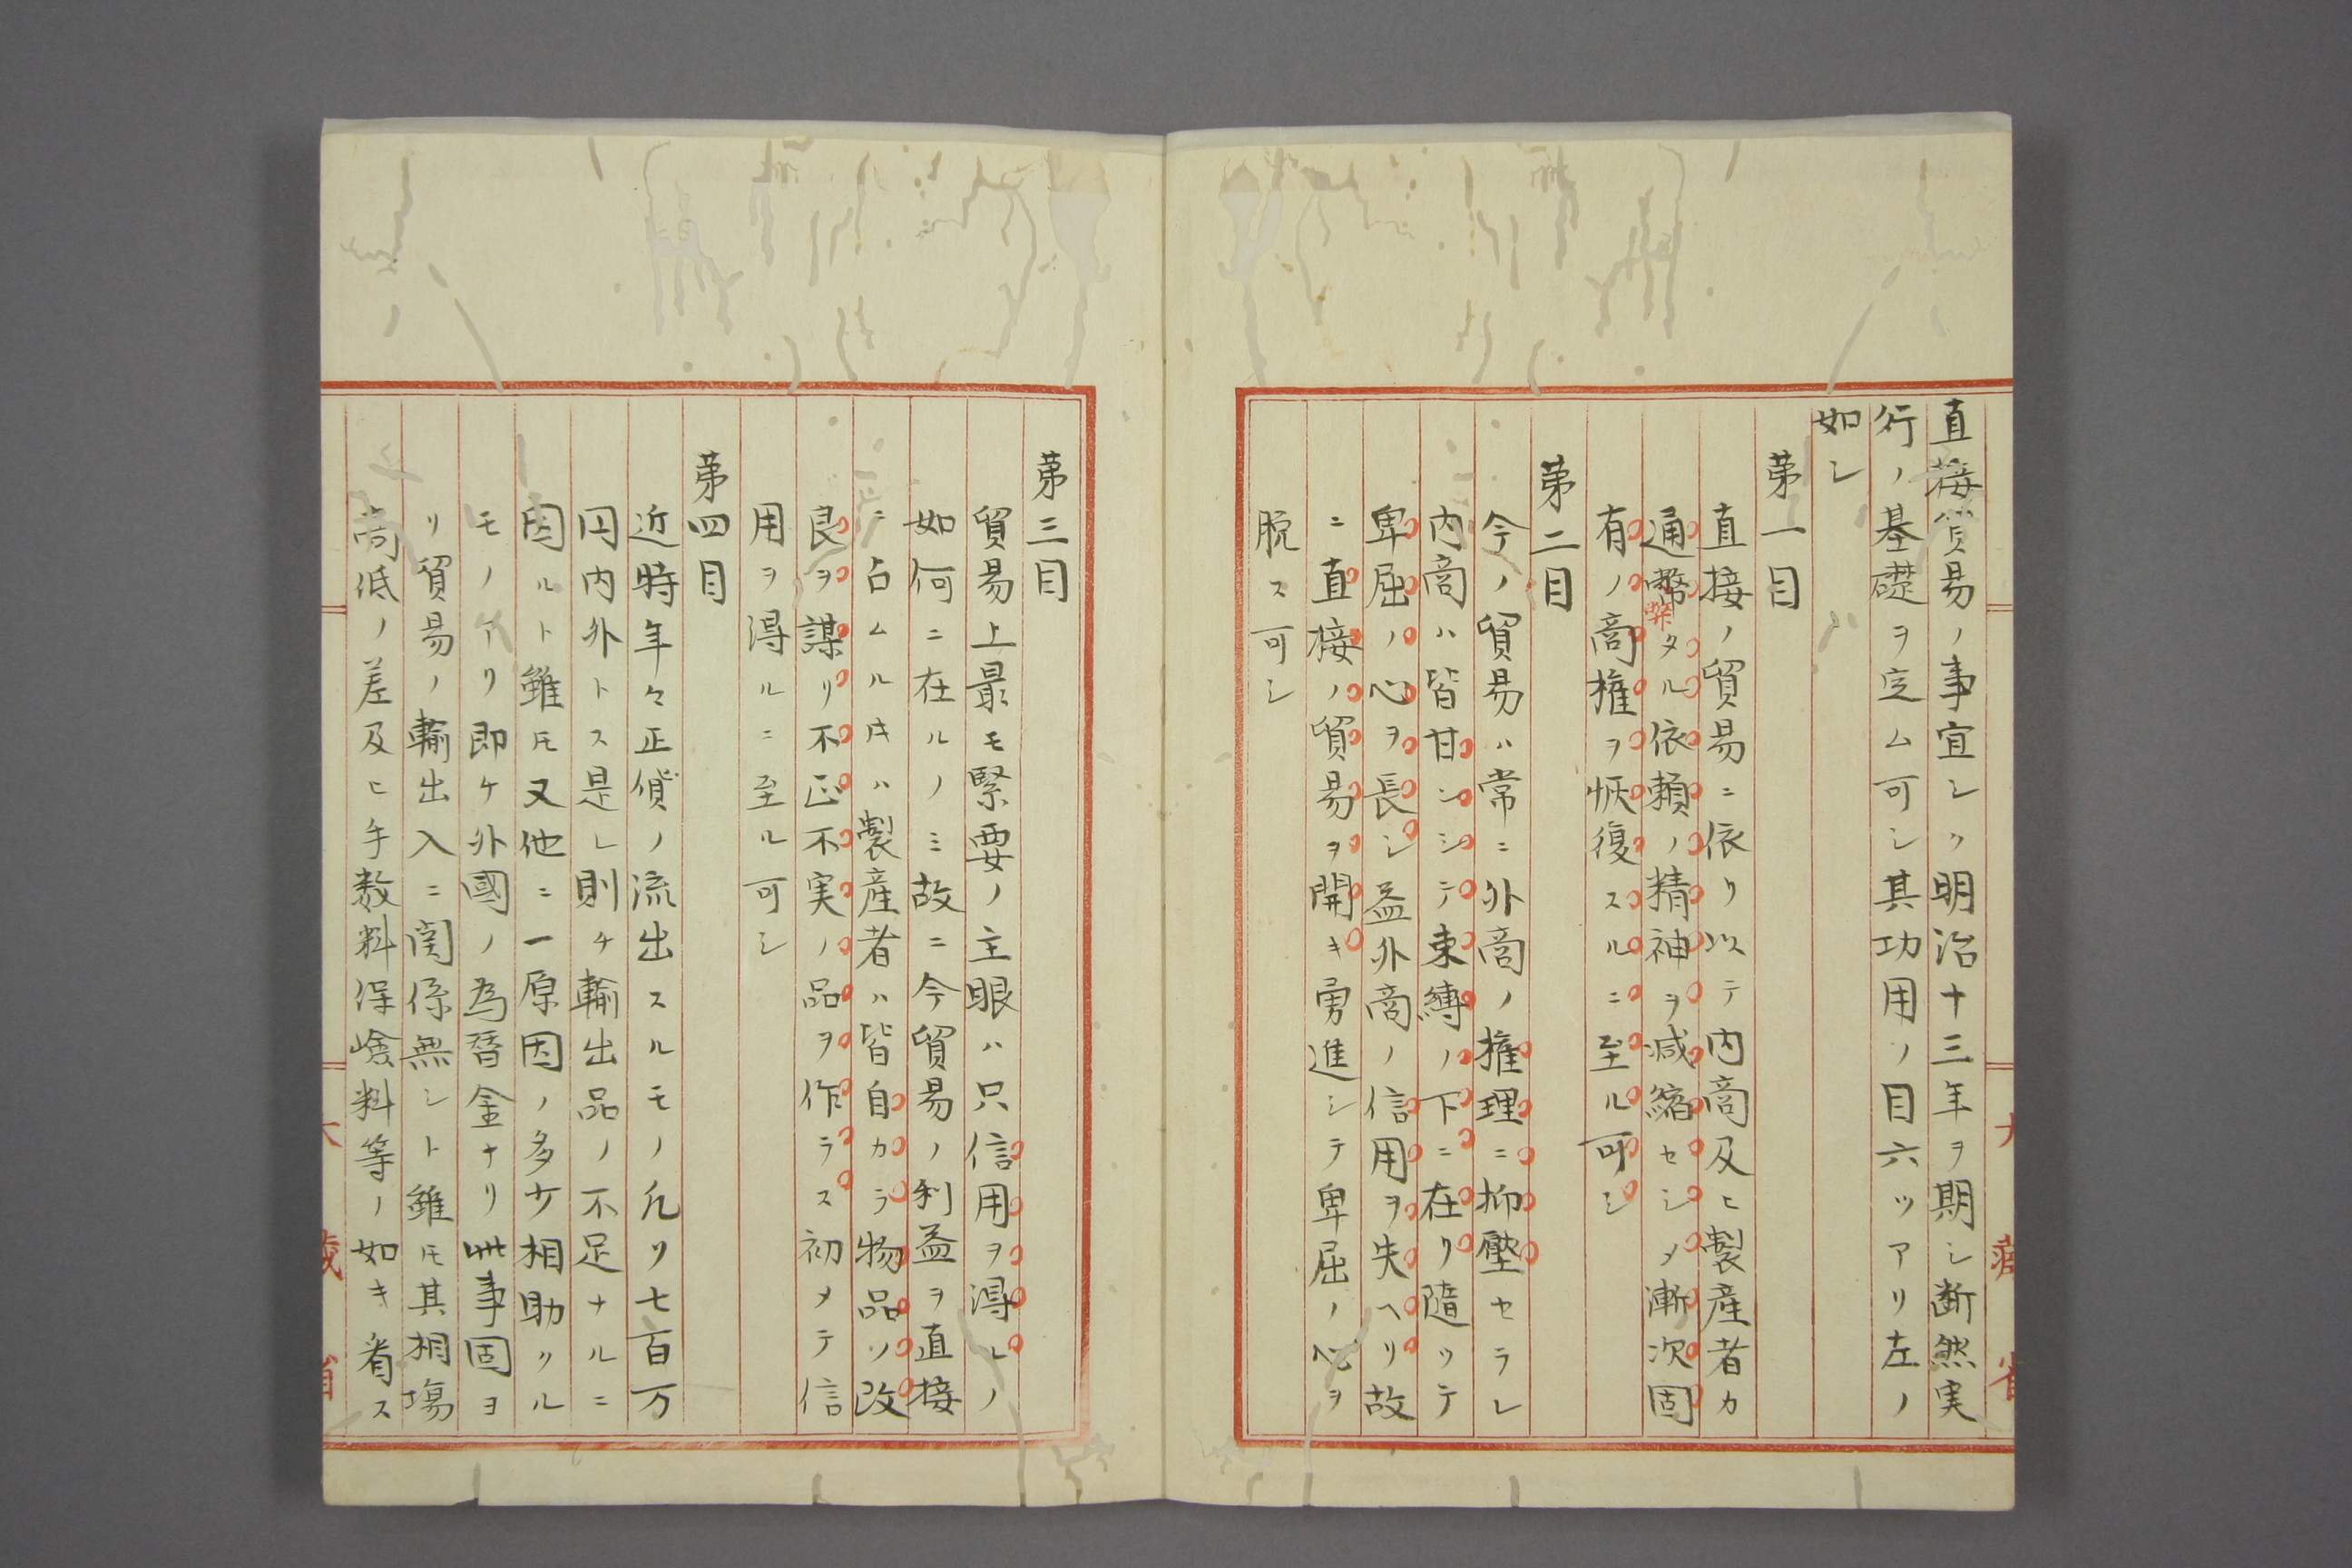 直接貿易ノ事宜シク明治十三年ヲ期シ断然実
行ノ基礎ヲ定ム可シ其功用ノ目六ツアリ左ノ
如シ
第一目
直接ノ貿易ニ依リ以テ内商及ヒ製産者カ
通幣弊タル依頼ノ精神ヲ減縮セシメ漸次固
有ノ商権ヲ恢復スルニ至ル可シ
第二目
今ノ貿易ハ常ニ外商ノ権理ニ抑壓セラレ
内商ハ皆甘ンシテ束縛ノ下ニ在リ随ツテ
卑屈ノ心ヲ長シ益外商ノ信用ヲ失ヘリ故
ニ直接ノ貿易ヲ開キ勇進シテ卑屈ノ心ヲ
脱ス可シ
大藏省
第三目
貿易上最モ緊要ノ主眼ハ只信用ヲ得レノ
如何ニ在ルノミ故ニ今貿易ノ利益ヲ直接
ニ占ムル寸ハ製産者ハ皆自カラ物品ソ改
良ヲ謀リ不正不実ノ品ヲ作ラス初メテ信
用ヲ得ルニ至ル可シ
第四目
近時年々正貨ノ流出スルモノ凡ソ七百万
円内外トス是レ則チ輸出品ノ不足ナルニ
因ルト雖モ又他ニ一原因ノ多少相助クル
モノアリ即ケ外國ノ為替金ナリ此事固ヨ
リ貿易ノ輸出入ニ関係無シト雖モ其相場
高低ノ差及ヒ手数料保嶮料等ノ如キ省ス
大藏省